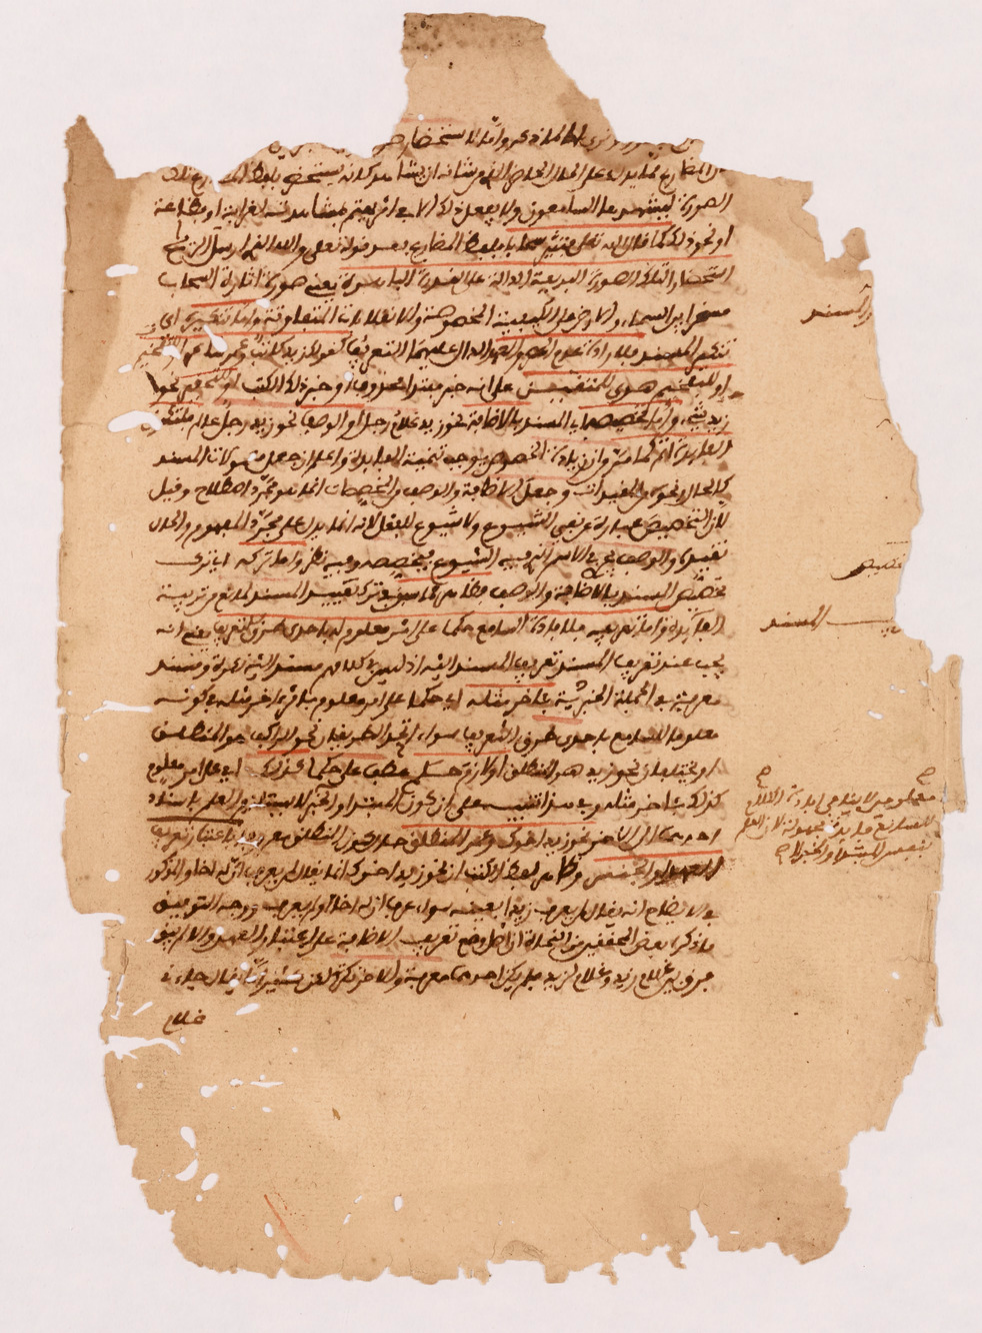 لان المضارع مما يدل على الحال الحاضر الذي من شانه ان يشاهد كانه يستحضر بلفظ المضارع تلك
الصورة ليشهدها السامعون ولا يفعل ذلك الا في امر يهتم بمشاهدته لغرابة او فظاعة
او نحو ذلك كما قال الله تعلى فتثير سحابا بلفظ المضارع بعد قوله تعلى والله الذي ارسل الرياح
استحضارا لتلك الصورة البديعة الدالة على القدرة الباهرة يعني صورة اثارة السحاب
مسخرا بين السماء والارض على الكيفية المخصوصة والانقلابات المتفاوتة واما تنكيره اي
تنكير المسند فلارادة عدم الحصر والعهد الدال عليهما التعريف كقولك زيد كاتب وعمرو شاعر
او للتفخيم هدى للمتقين على انه خبر مبتدا محذوف او خبر ذلك الكتب او للتحقير نحو ما
زيد شيء واما تخصيصه اي المسند بالاضافة نحو زيد غلام رجل او الوصف نحو زيد رجل عالم فلتكون
الفايدة اتم كما مر من ان زيادة الخصوص يوجب تتمية الفايدة واعلم ان جعل معمولات المسند
كالحال ونحوه من المقيدات وجعل الاضافة والوصف من المخصصات انما هو مجرد اصطلاح وقيل
لان التخصيص عبارة عن نقص الشيوع ولا شيوع للفعل لانه انما يدل على مجرد المفهوم والحال
تقيده والوصف يجيء في الاسم الذي فيه الشيوع فيخصصه وفيه نظر واما تركه اي ترك
تخصيص المسند بالاضافة والوصف فظاهر مما سبق في ترك تقييد المسند لمانع من تربية
الفايدة واما تعريفه فلافادة السامع حكما على امر معلوم له باحدى طرق التعريف يعني انه
يجب عند تعريف المسند تعريف المسند اليه اذ ليس في كلامهم مسند اليه نكرة ومسند
معرفة في الجملة الخبرية باخر مثله اي حكما على امر معلوم بامر اخر مثله في كونه
معلوما للسامع باحدى طرق التعريف سواء اتحد الطريقان نحو الراكب هو المنطلق
او يختلفان نحو زيد هو المنطلق او لازم حكم عطف على حكما كذلك اي على امر معلوم
كذلك باخر مثله وفي هذا تنبيه على ان كون المبتدا والخبر لا ينافي العلم باسناد
احدهما الى الاخر نحو زيد اخوك وعمرو المنطلق حال كون المنطلق معرفا باعتبار تعريف
العهد او الجنس وظاهر لفظ الكتب ان نحو زيد اخوك انما يقال لمن يعرف ان له اخا والمذكور
في الايضاح انه يقال لمن يعرف زيدا بعينه سواء عرف ان له اخا او لم يعرف ووجه التوفيق
ما ذكره بعض المحققين من النحاة ان اصل وضع تعريف الاضافة على اعتبار العهد والا لم يبق
فرق بين غلام زيد وغلام لزيد فلم يكن احدهما معرفة والاخر نكرة لكن كثيرا ما يقال جاءني
غلام
المسند
المسند